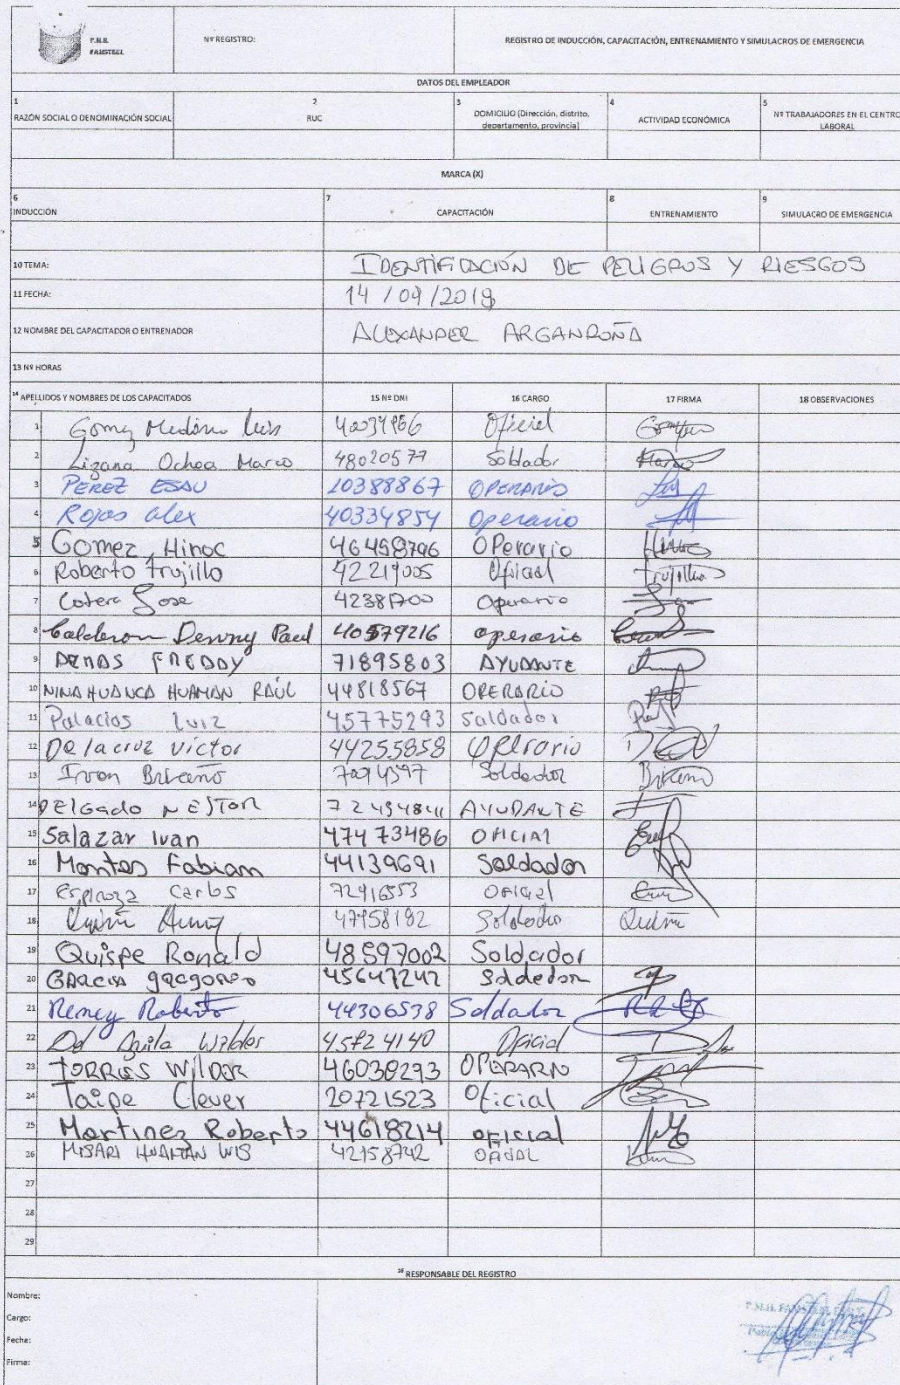 P.H.B.
FAMSTEEL
Nº REGISTRO:
REGISTRO DE INDUCCIÓN, CAPACITACIÓN, ENTRENAMIENTO Y SIMULACROS DE EMERGENCIA
DATOS DEL EMPLEADOR
1 RAZÓN SOCIAL O DENOMINACIÓN SOCIAL
2 RUC
3 DOMICILIO (Dirección, distrito, departamento, provincia)
4 ACTIVIDAD ECONÓMICA
5 Nº TRABAJADORES EN EL CENTRO LABORAL
MARCA (X)
6 INDUCCIÓN
7 CAPACITACIÓN
8 ENTRENAMIENTO
9 SIMULACRO DE EMERGENCIA
10 TEMA: IDENTIFICACIÓN DE PELIGROS Y RIESGOS
11 FECHA: 14 / 09 / 2018
12 NOMBRE DEL CAPACITADOR O ENTRENADOR ALEXANDER ARGANDOÑA
13 Nº HORAS
14 APELLIDOS Y NOMBRES DE LOS CAPACITADOS 15 Nº DNI 16 CARGO 17 FIRMA 18 OBSERVACIONES
1 Gomez Medina Luis Oficial
2 Lizana Ochoa Marco 48020577 Soldador
3 PEREZ ESAU 10388867 OPERARIO
4 Rojas alex 40334854 Operario
5 Gomez Hinoc 46498796 OPerario
6 Roberto Trujillo 42219005 Oficial Trujillo
7 Cotera Jose Operario
8 Calderon Denny Paul 40579216 operario
9 FREDDY 71895803 AYUDANTE
10 NINAHUANCA HUAMAN RAÚL 44818567 OPERARIO
11 Palacios Luiz 45775293 Soldador
12 De la cruz Victor 44255858 Operario
13 Ivan Briceño Soldador Briceño
14 DELGADO NESTOR AYUDANTE
15 Salazar Ivan 47473486 OFICIAL
16 Montes Fabian 44139691 Soldador
17 Espinoza Carlos 72916553 Oficial
18 47758182 Soldador
19 Quispe Ronald 48597002 Soldador
20 GARCIA gregoreo 45647242 Soldedor
21 Remey Roberto 44306538 Soldador
22 Del Aguila Wilder 45724140 Oficial
23 TORRES WILDER 46038293 OPERARIO
24 Taipe Clever 20721523 Oficial
25 Martinez Roberto 44618214 oficial
26 MISARI HUAMAN LUIS 42158742 OFICIAL
27
28
29
RESPONSABLE DEL REGISTRO
Nombre:
Cargo:
Fecha:
Firma: